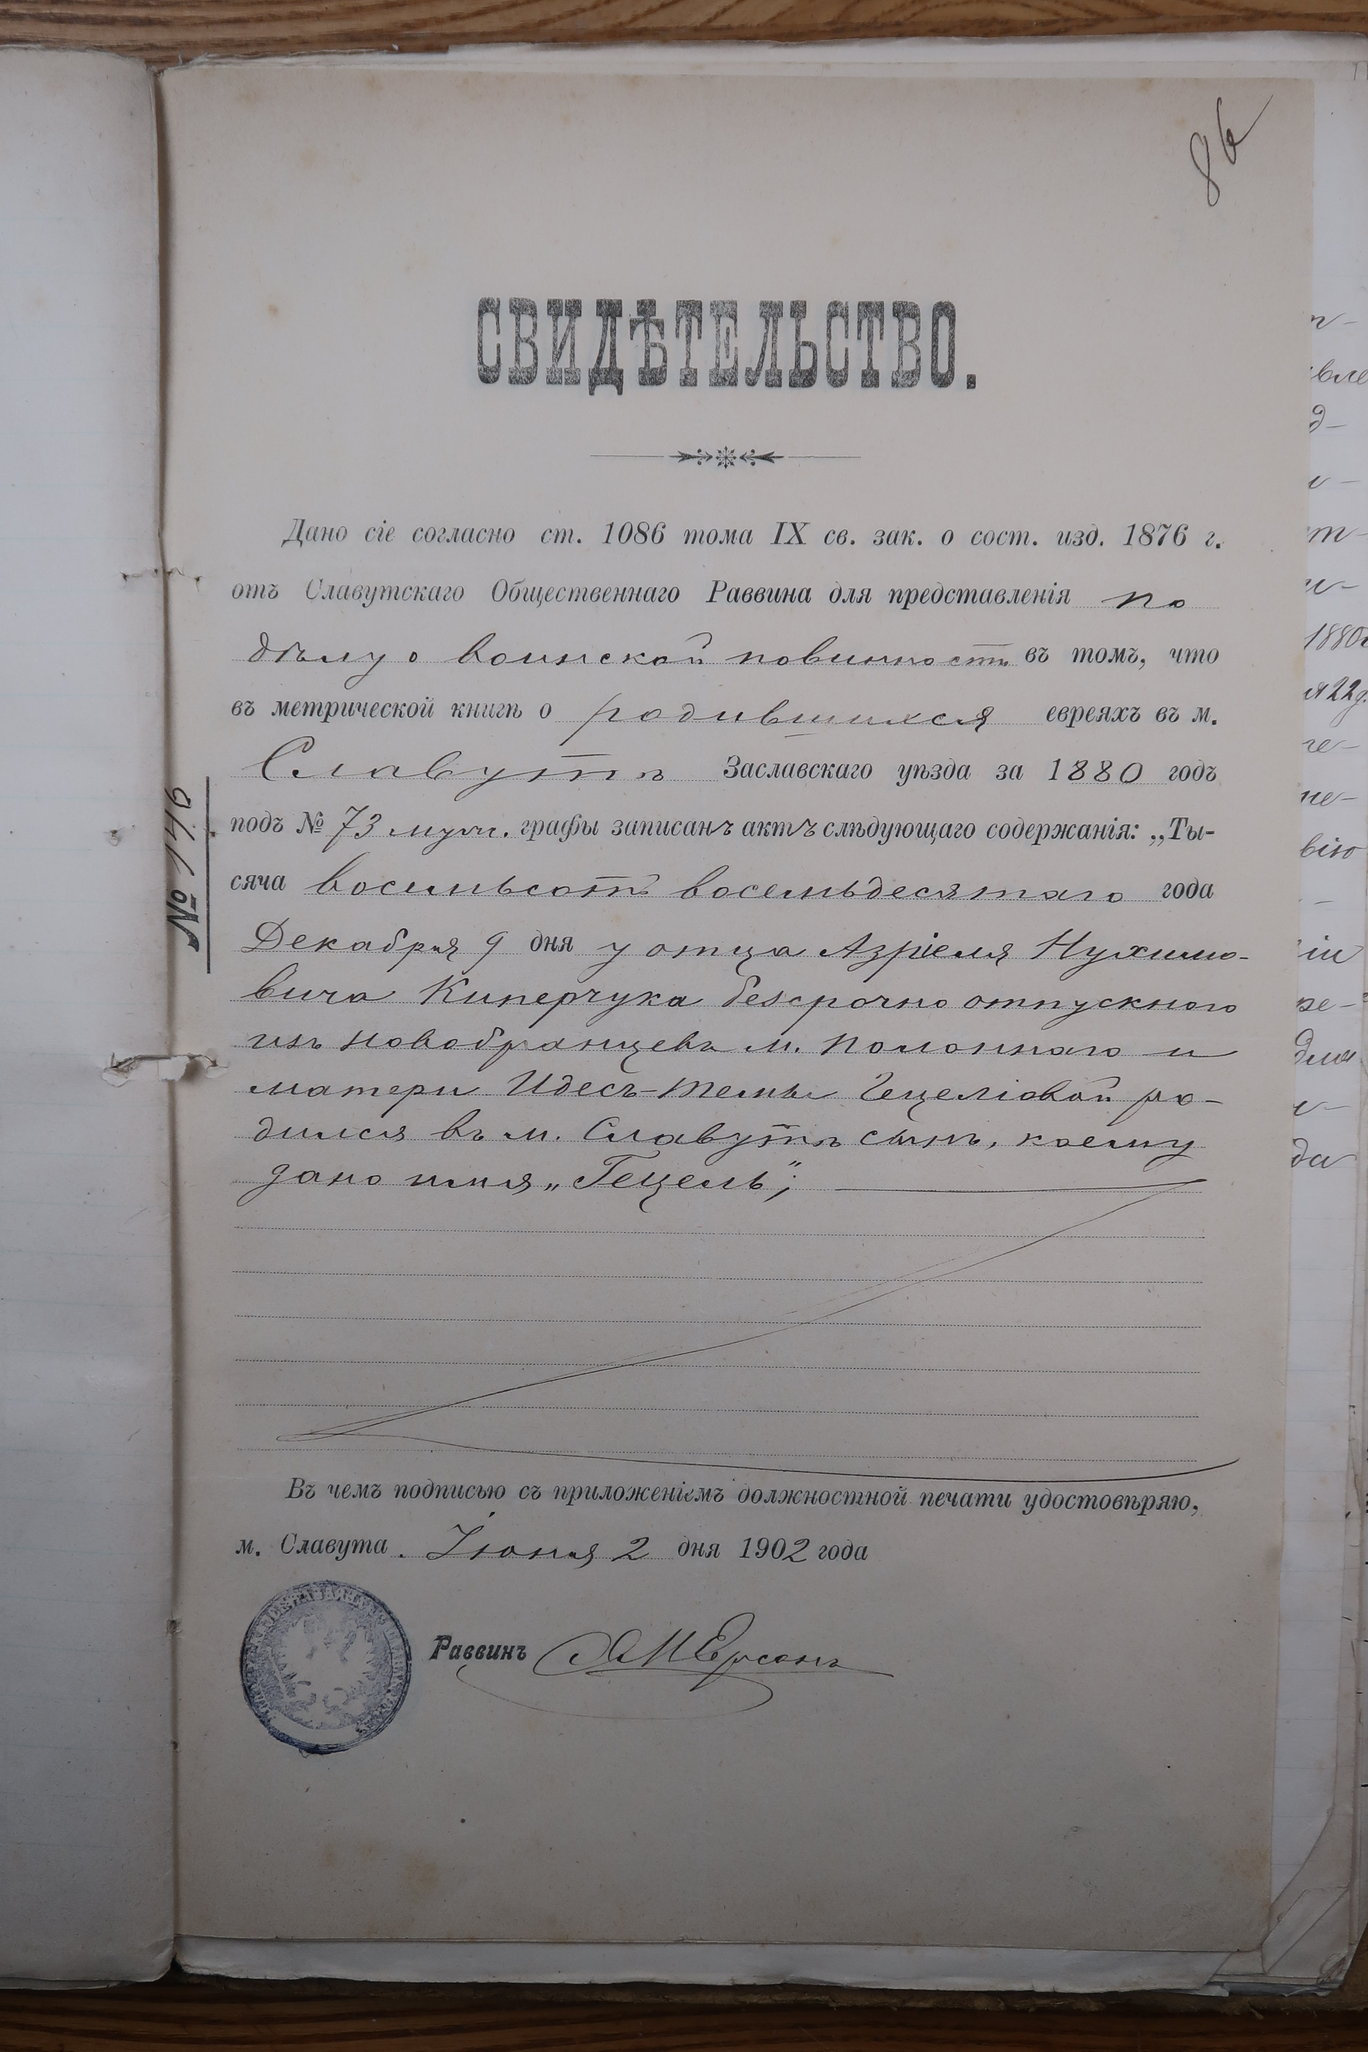 86
СВИДѢТЕЛЬСТВО.
Дано сіе согласно ст. 1086 тома IX св. зак. о сост. изд. 1876 г.
отъ Славутскаго Общественнаго Раввина для представленія по
дѣлу о воинской повинности въ томъ, что
въ метрической книгѣ о родившихся евреяхъ въ м.
Славутѣ Заславскаго уѣзда за 1880 годъ
подъ № 73 муж. графы записанъ актъ слѣдующаго содержанія: „Ты-
сяча восемьсотъ восемьдесятаго года
Декабря 9 дня у отца Азріеля Нухимо-
вича Киперчука безсрочно отпускного
изъ новобранцевъ м. Полоннаго и
матери Идесъ-Темы Гецеліовой ро-
дился въ м. Славутѣ сынъ, коему
дано имя „Гецель";
Въ чемъ подписью съ приложеніемъ должностной печати удостовѣряю,
м. Славута. Іюня 2 дня 1902 года
Раввинъ
№ 146